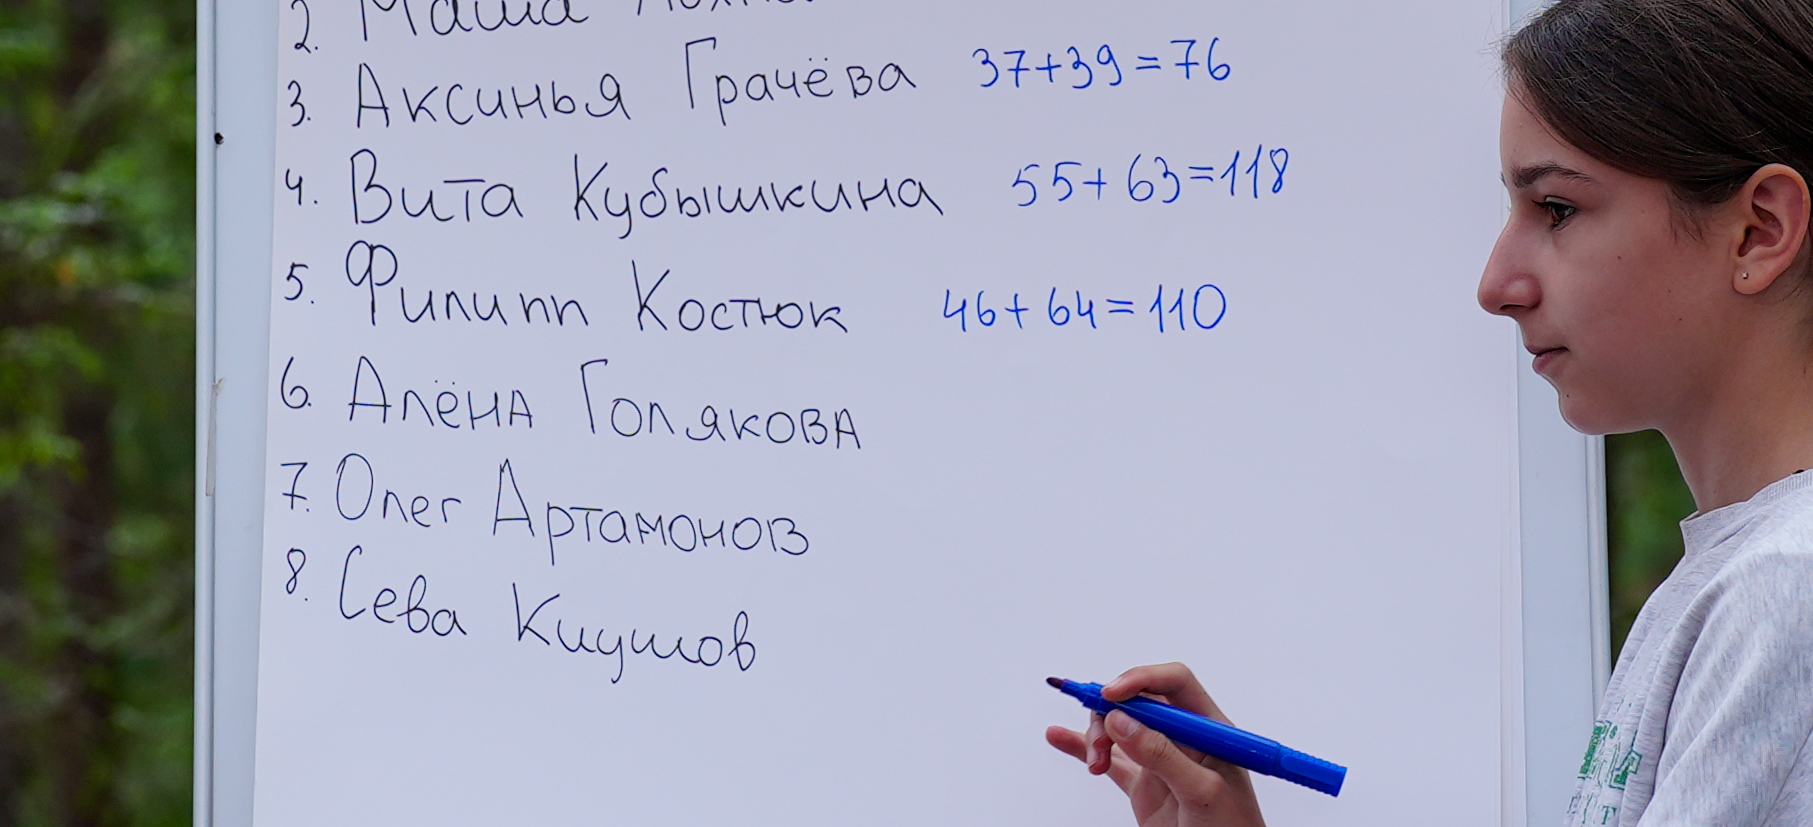 2. Маша
3. Аксинья Грачёва 37+39=76
4. Вита Кубышкина 55+63=118
5. Филипп Костюк 46+64=110
6. Алёна Голякова
7. Олег Артамонов
8. Сева